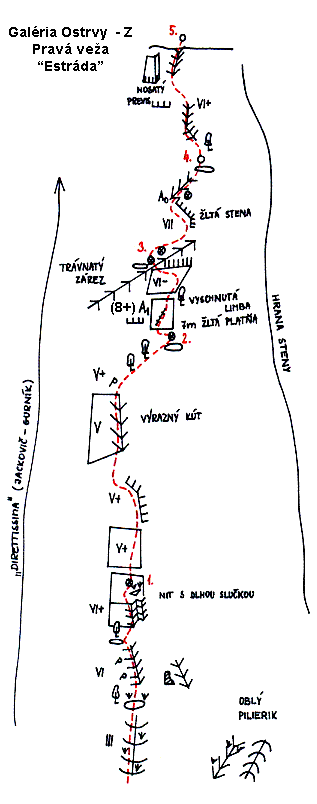 Galéria Ostrvy - Z
Pravá veža
“Estráda”
5.
NOSATÝ
PREVIS
VI+
4.
A0
VII
ŽLTÁ STENA
3.
TRÁVNATÝ
ZÁREZ
VI-
(8+) A1
VYSCHNUTÁ
LIMBA
7m ŽLTÁ PLATŇA
2.
HRANA STENY
V+
V
VÝRAZNÝ KÚT
V+
V+
„DIRETTISSIMA“ (JACKOVIČ - GURNÍK)
1.
NIT S DLHOU SLUČKOU
VI+
VI
OBLÝ
PILIERIK
III